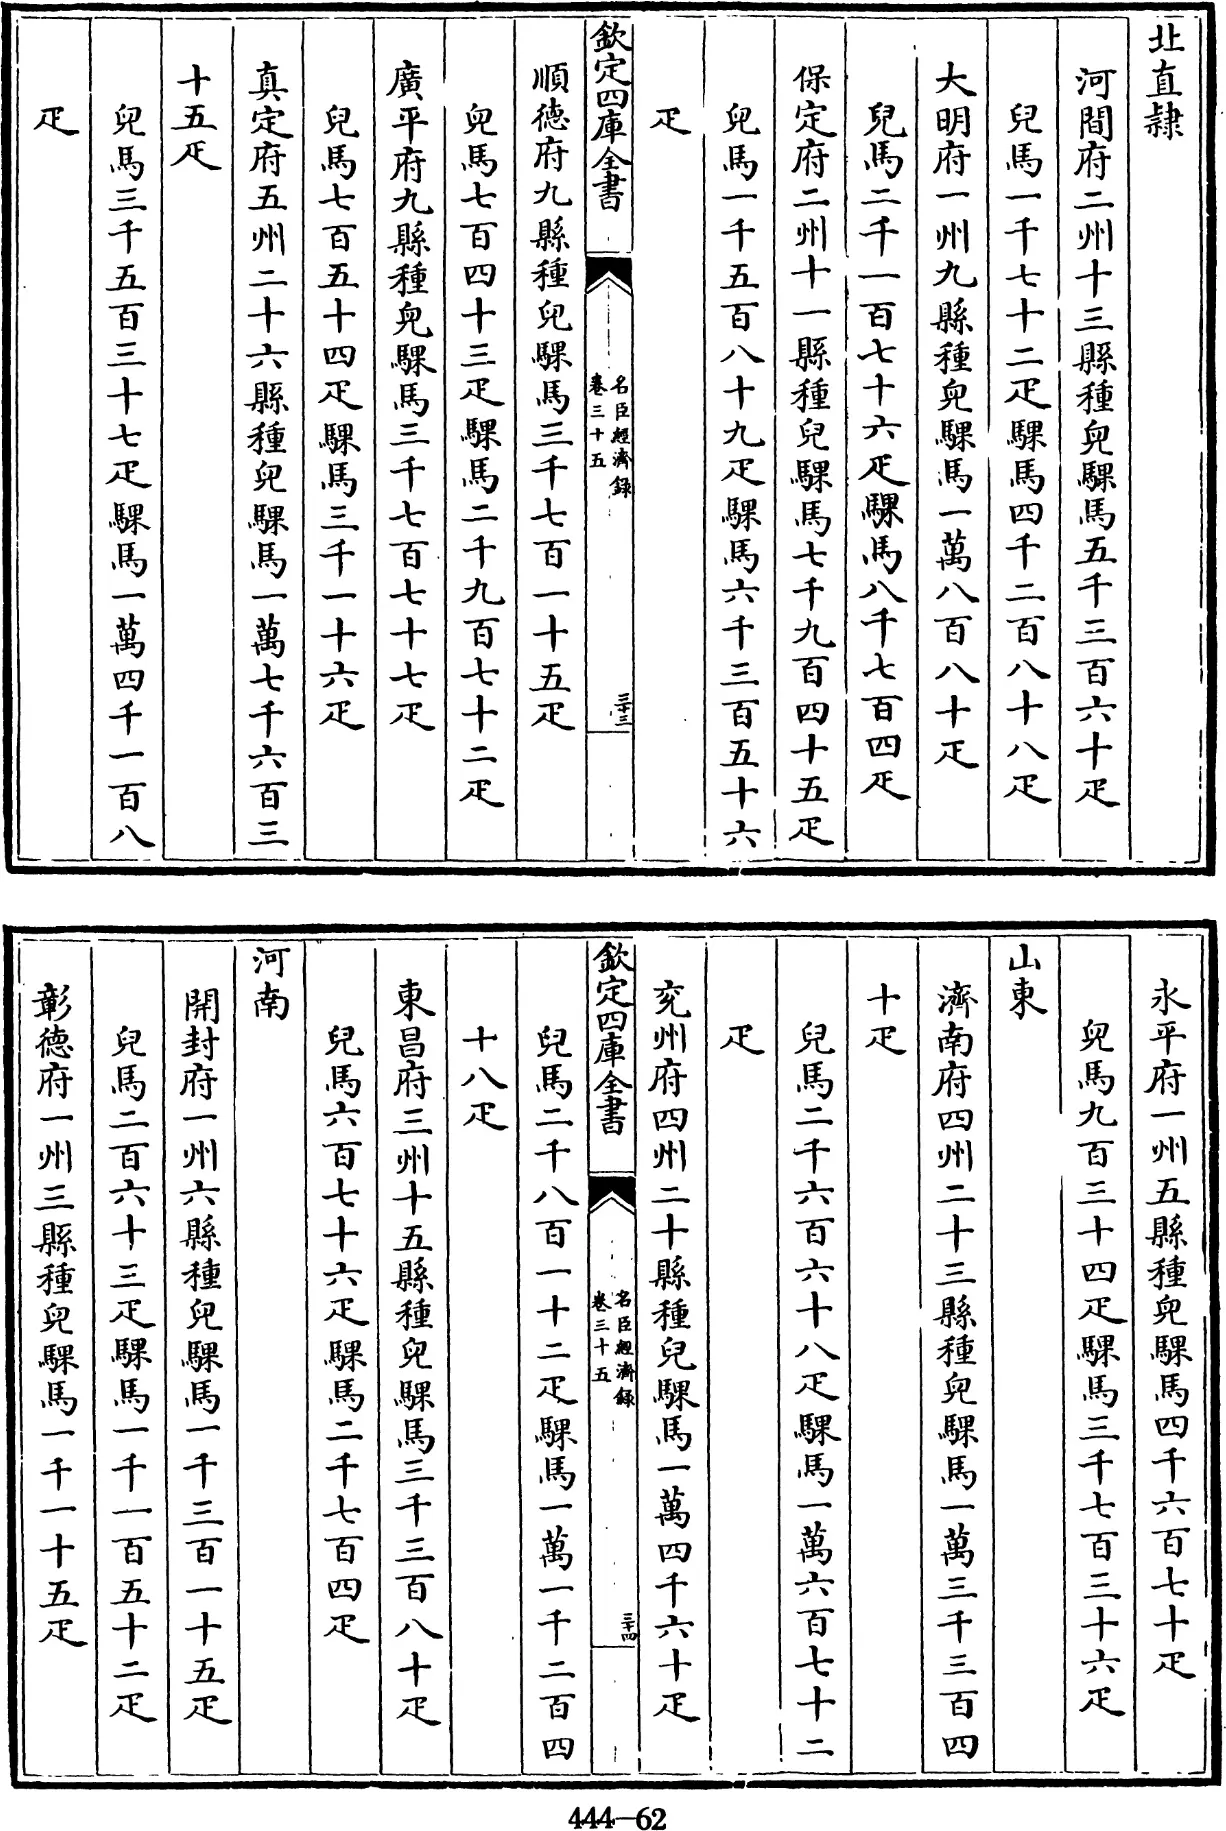 北直隷
河間府二州十三縣種兒騍馬五千三百六十疋
兒馬一千七十二疋騍馬四千二百八十八疋
大明府一州九縣種兒騍馬一萬八百八十疋
兒馬二千一百七十六疋騍馬八千七百四疋
保定府二州十一縣種兒騍馬七千九百四十五疋
兒馬一千五百八十九疋騍馬六千三百五十六
疋
欽定四庫全書
名臣經濟錄
卷三十五
三十三
順德府九縣種兒騍馬三千七百一十五疋
兒馬七百四十三疋騍馬二千九百七十二疋
廣平府九縣種兒騍馬三千七百七十七疋
兒馬七百五十四疋騍馬三千一十六疋
真定府五州二十六縣種兒騍馬一萬七千六百三
十五疋
兒馬三千五百三十七疋騍馬一萬四千一百八
疋
永平府一州五縣種兒騍馬四千六百七十疋
兒馬九百三十四疋騍馬三千七百三十六疋
山東
濟南府四州二十三縣種兒騍馬一萬三千三百四
十疋
兒馬二千六百六十八疋騍馬一萬六百七十二
疋
兖州府四州二十縣種兒騍馬一萬四千六十疋
欽定四庫全書
名臣經濟錄
卷三十五
三十四
兒馬二千八百一十二疋騍馬一萬一千二百四
十八疋
東昌府三州十五縣種兒騍馬三千三百八十疋
兒馬六百七十六疋騍馬二千七百四疋
河南
開封府一州六縣種兒騍馬一千三百一十五疋
兒馬二百六十三疋騍馬一千一百五十二疋
彰德府一州三縣種兒騍馬一千一十五疋
444—62